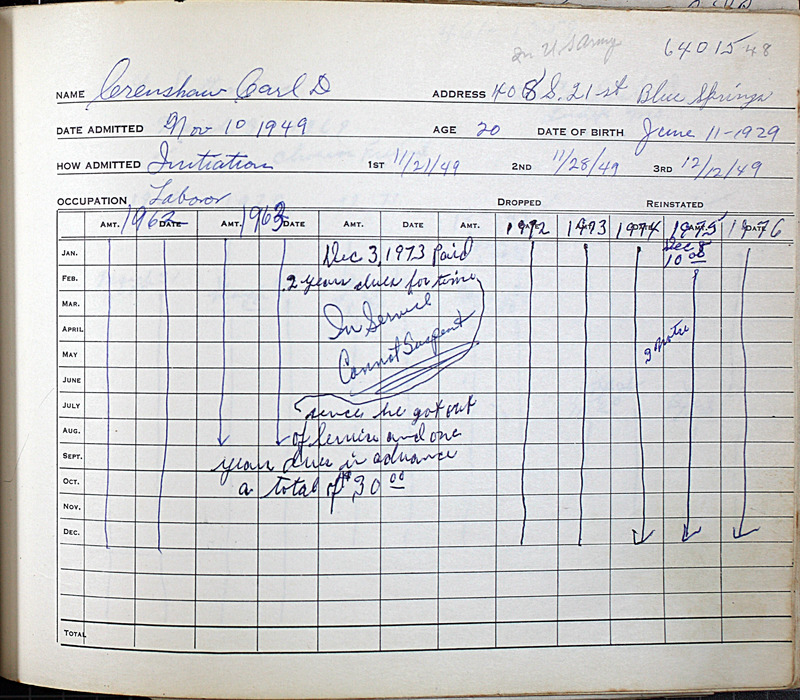 In U.S Army 6401548
NAME Crenshaw Carl D ADDRESS 408 S. 21 st Blue Springs
DATE ADMITTED Nov 10 1949 AGE 20 DATE OF BIRTH June 11-1929
HOW ADMITTED Initiation 1ST 11/21/49 2ND 11/28/49 3RD 12/12/49
OCCUPATION Laboor DROPPED REINSTATED
AMT. 1962 DATE AMT. 1963 DATE AMT. DATE AMT. 1972 1973 1974 1975 AMT. 1976 DATE
JAN. Dec 3, 1973 Paid Dec 8
10 00
FEB. 2 years dues for time
MAR. In Service
APRIL
MAY Cannot Suspent
JUNE
JULY since he got out
AUG. of service and one
SEPT. year dues in advance
OCT. a total of $30 00
NOV.
DEC.
TOTAL